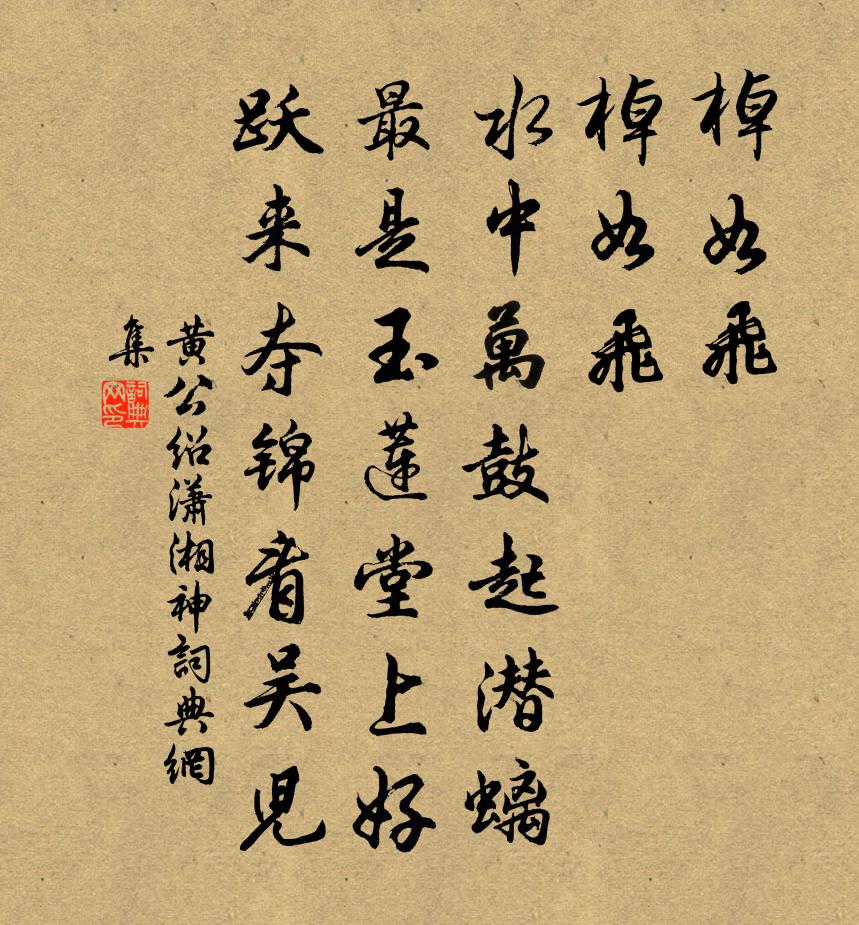 棹如飛
棹如飛
水中萬鼓起潜螭
最是玉蓮堂上好
跃来夺锦看吴兒
黄公绍瀟湘神詞典網
集
詞典
网印